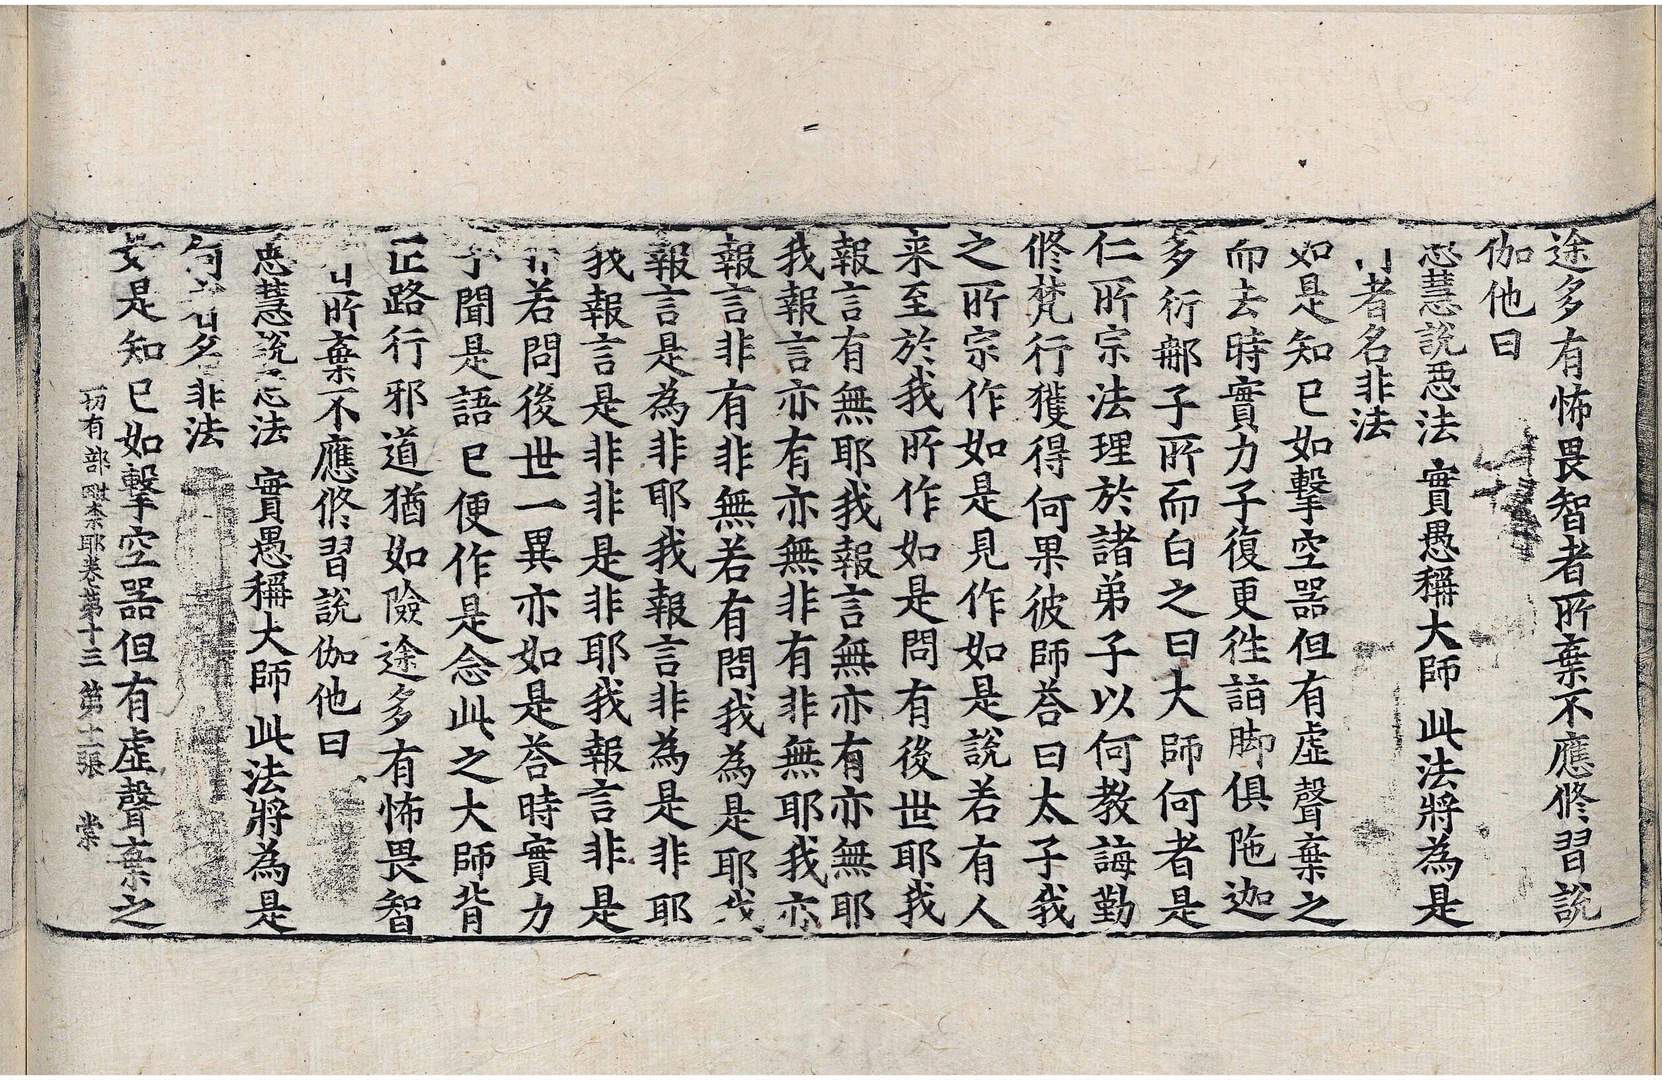 途多有怖畏智者所棄不應修習說
伽他曰
惡慧說惡法 實愚稱大師 此法將為是
者名非法
如是知已如擊空器但有虛聲棄之
而去時實力子復更往詣脚俱陁迦
多衍郍子所而白之曰大師何者是
仁所宗法理於諸弟子以何教誨勤
修梵行獲得何果彼師荅曰太子我
之所宗作如是見作如是說若有人
来至於我所作如是問有後世耶我
報言有無耶我報言無亦有亦無耶
我報言亦有亦無非有非無耶我亦
報言非有非無若有問我為是耶我
報言是為非耶我報言非為是非耶
我報言是非非是非耶我報言非是
非若問後世一異亦如是荅時實力
子聞是語已便作是念此之大師背
正路行邪道猶如險途多有怖畏智
所棄不應修習說伽他曰
惡慧說惡法 實愚稱大師 此法將為是
何者名非法
如是知已如擊空器但有虛聲棄之
一切有部毗柰耶卷第十三 第十二張 棠